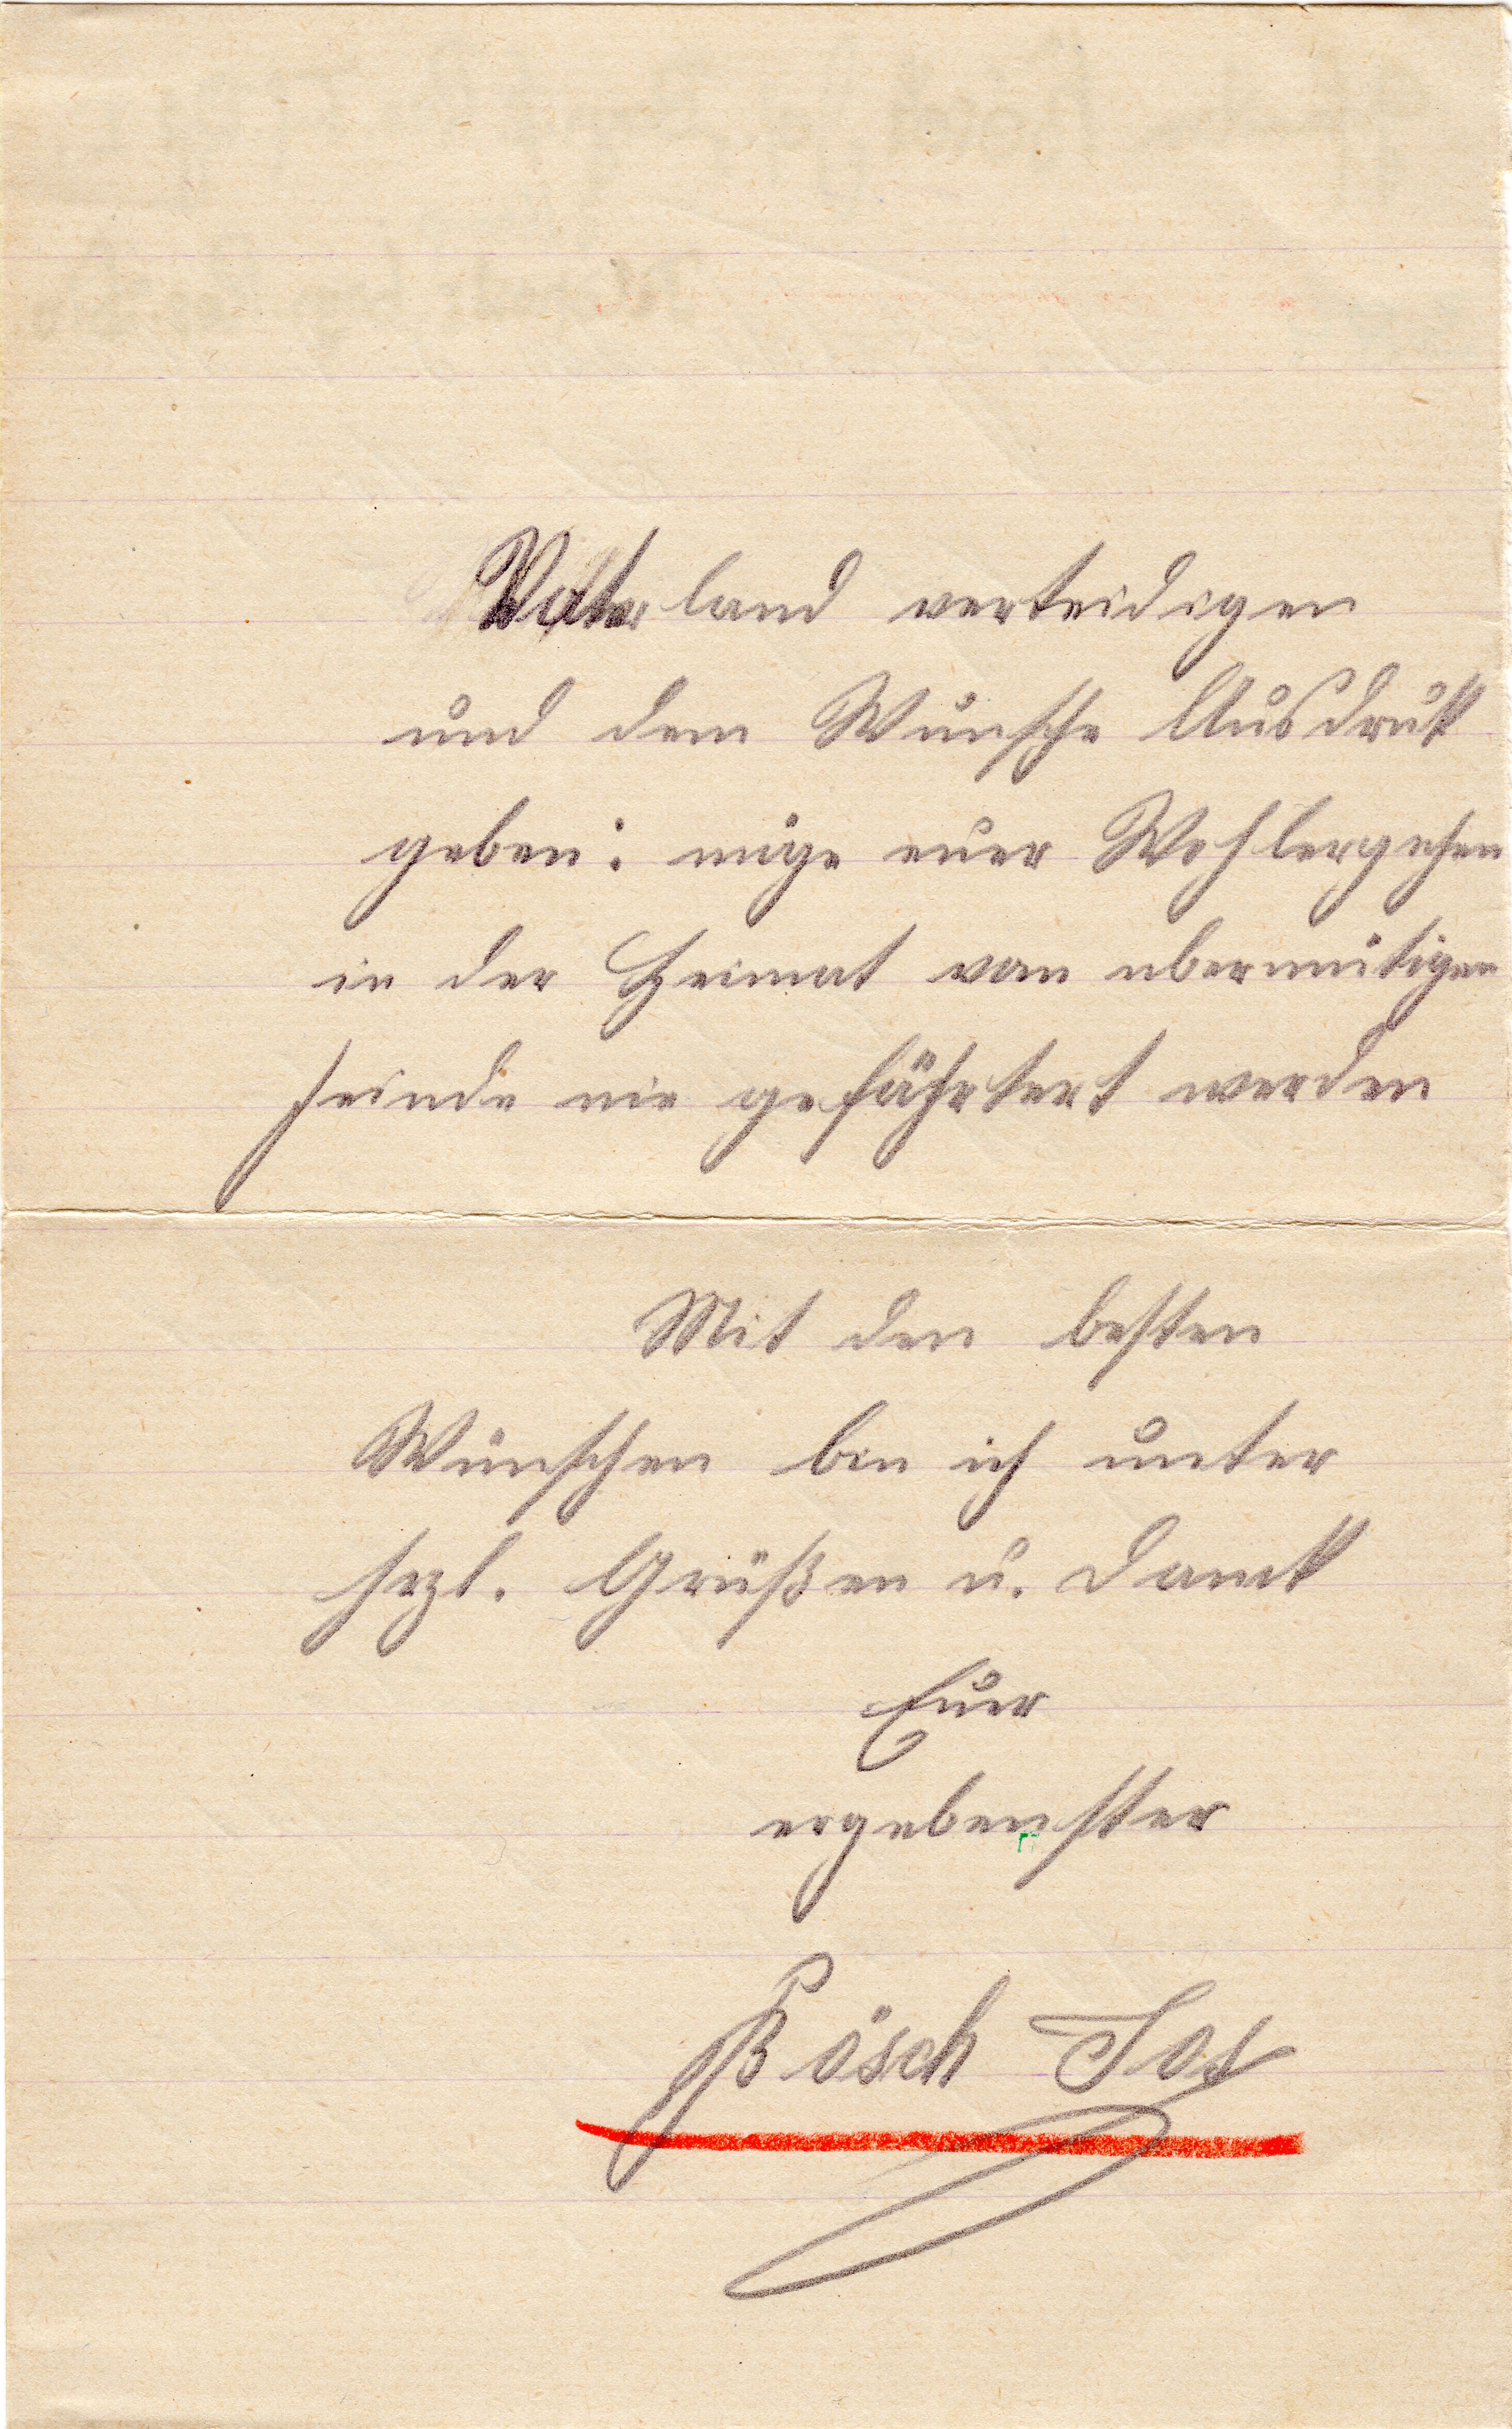 Vaterland verteidigen
und dem Wunsche Ausdruk
geben: möge euer Wohlergehen
in der Heimat vom ubermütigen
feinde nie gefährtert werden
Mit den besten
Wünschen bin ich unter
hrzl. Grüßen u. Dank
Euer
ergebenster
Bösch Jos